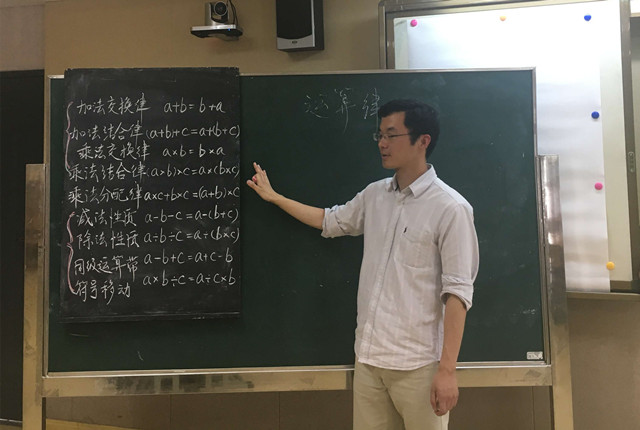 运算律
加法交换律 a+b=b+a
加法结合律(a+b)+c=a+(b+c)
乘法交换律 a×b=b×a
乘法结合律(a×b)×c=a×(b×c)
乘法分配律a×c+b×c=(a+b)×c
减法性质 a-b-c=a-(b+c)
除法性质 a÷b÷c=a÷(b×c)
同级运算带 a-b+c=a+c-b
符号移动 a×b÷c=a÷c×b